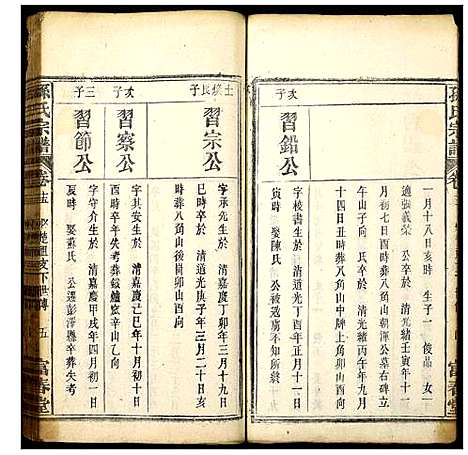 孫氏宗譜
卷
一月十八日亥時 生子一 俊品 女一
適張義榮 公卒於 清光緒壬寅年十一
月初七日酉時葬八角山朝渾公墓右碑立
午山子向 氏卒於 清光緒丙午年九月
十四日卯時葬八角山中牌上角卯山酉向
次子
習鉛公
字 生於 清道光
寅時 娶陳氏 公被逃虜不知所終
長子
習宗公
字承先生於 清嘉慶丁卯年三月十九日
巳時卒於 清道光庚子年三月二十日亥
時葬八角山後樹卯山酉向
次子
習察公
字其安生於 清嘉慶己巳年十月初十日
酉時卒年失考葬鐵爐窰辛山乙向
三子
習節公
字守介生於 清嘉慶甲戌年四月初一日
夏時 娶蘇氏 公遷彭澤縣卒葬失考
孫氏宗譜
卷
下世傳
五
富春堂
富春堂